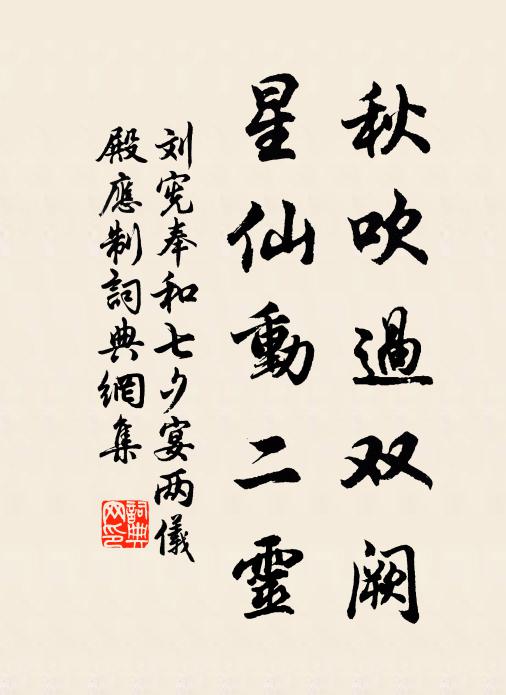 秋吹過双阙
星仙動二靈
刘宪奉和七夕宴两儀
殿應制詞典網集
詞典网印